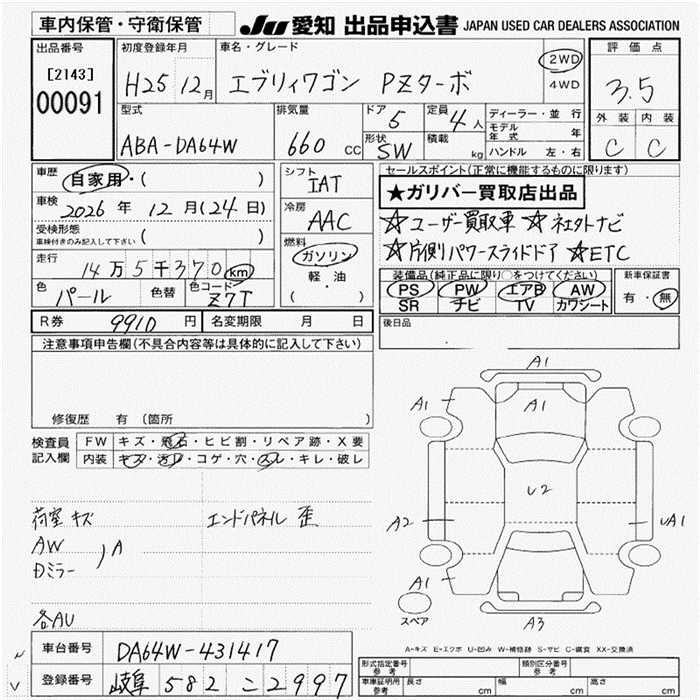 車内保管・守衛保管
JU 愛知 出品申込書 JAPAN USED CAR DEALERS ASSOCIATION
出品番号
[2143]
00091
初度登録年月
H25 12月
車名・グレード
エブリィワゴン PZターボ
2WD
4WD
評価点
3.5
外装 内装
C C
型式
ABA-DA64W
排気量
660 CC
ドア
5
定員
4人
形状
SW
積載
kg
ディーラー・並行
モデル年式 年
ハンドル 左・右
車歴
自家用・( )
車検
2026年 12月(24日)
受検形態
車検付きのみ記入して下さい ( )
走行
14万5千370 km
色
パール
色替
色コード
Z7T
シフト
IAT
冷房
AAC
燃料
ガソリン
軽・油
( )
セールスポイント(正常に機能するものに限ります)
★ガリバー買取店出品
☆ユーザー買取車 ☆社外ナビ
☆片側パワースライドドア ☆ETC
装備品(純正品に限り○をつけてください)
PS PW エアB AW
SR ナビ TV カワシート
新車保証書
有・無
R券 9910円
名変期限 月 日
後日品
注意事項申告欄(不具合内容等は具体的に記入して下さい)
修復歴 有 (箇所
検査員記入欄
FW キズ・飛石・ヒビ割・リペア跡・X要
内装 キズ・汚レ・コゲ・穴・スレ・キレ・破レ
荷室キズ
エンドパネル 歪
AW
Dミラー
)A
各AU
A1
A1
A1
A1
U2
A2
UA1
A1
A1
A3
スペア
A-キズ E-エクボ U-凹み W-補修跡 S-サビ C-腐食 XX-交換済
車台番号
DA64W-431417
登録番号
岐阜 582 こ 2997
形式指定番号
参考
類別区分番号
参考
車庫証明用
参考
長さ cm
幅 cm
高さ cm